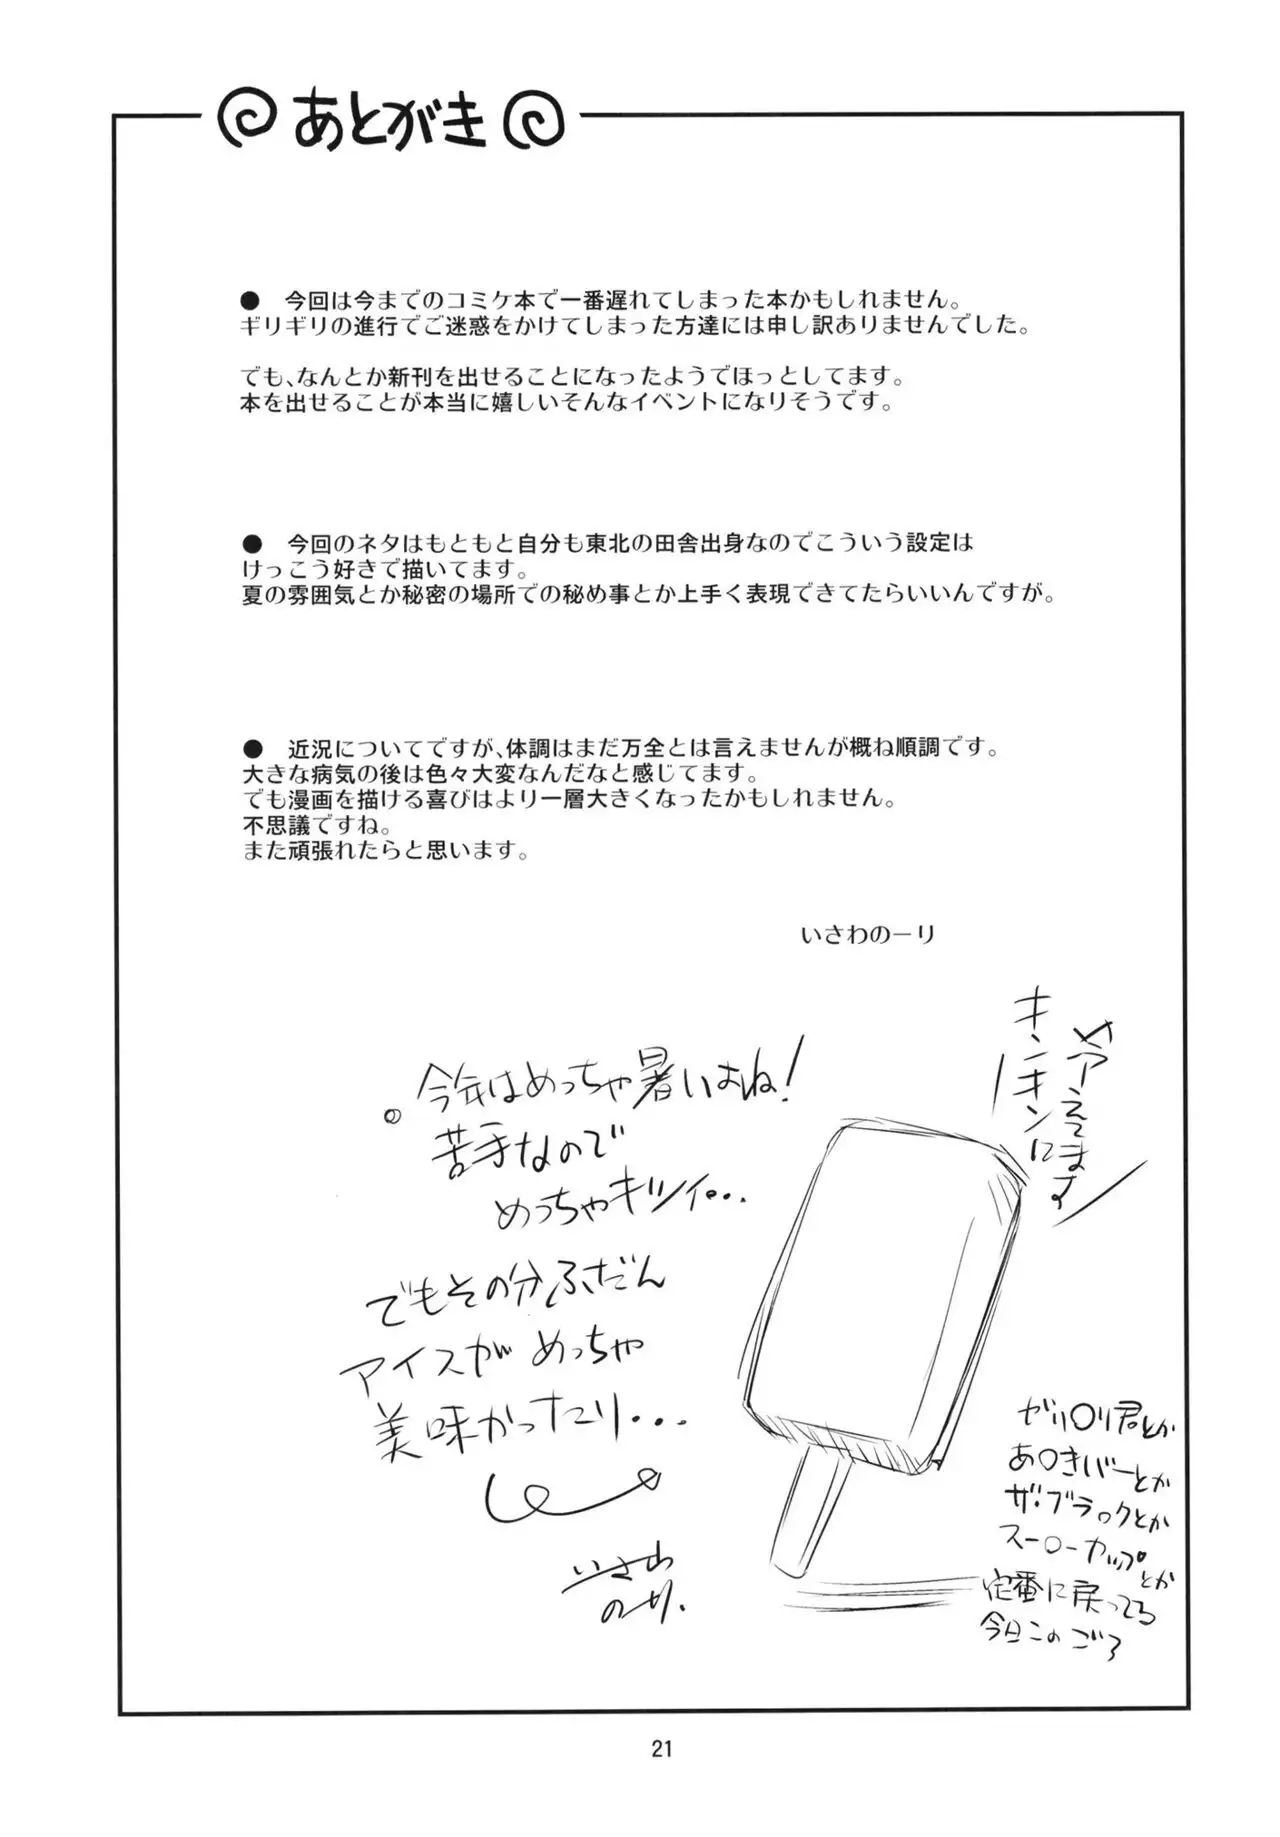 あとがき
● 今回は今までのコミケ本で一番遅れてしまった本かもしれません。
ギリギリの進行でご迷惑をかけてしまった方達には申し訳ありませんでした。
でも、なんとか新刊を出せることになったようでほっとしてます。
本を出せることが本当に嬉しいそんなイベントになりそうです。
● 今回のネタはもともと自分も東北の田舎出身なのでこういう設定は
けっこう好きで描いてます。
夏の雰囲気とか秘密の場所での秘め事とか上手く表現できてたらいいんですが。
● 近況についてですが、体調はまだ万全とは言えませんが概ね順調です。
大きな病気の後は色々大変なんだなと感じてます。
でも漫画を描ける喜びはより一層大きくなったかもしれません。
不思議ですね。
また頑張れたらと思います。
いさわのーり
今年はめっちゃ暑いよね!
苦手なので
めっちゃキツイ...
でもその分ふだん
アイスがめっちゃ
美味かったり...
いさわ
のーり.
キンキンに
冷えてます
ガリ〇リ君とか
あ〇きバーとか
ザ・ブラックとか
スーローカップとか
定番に戻ってる
今日このごろ
21